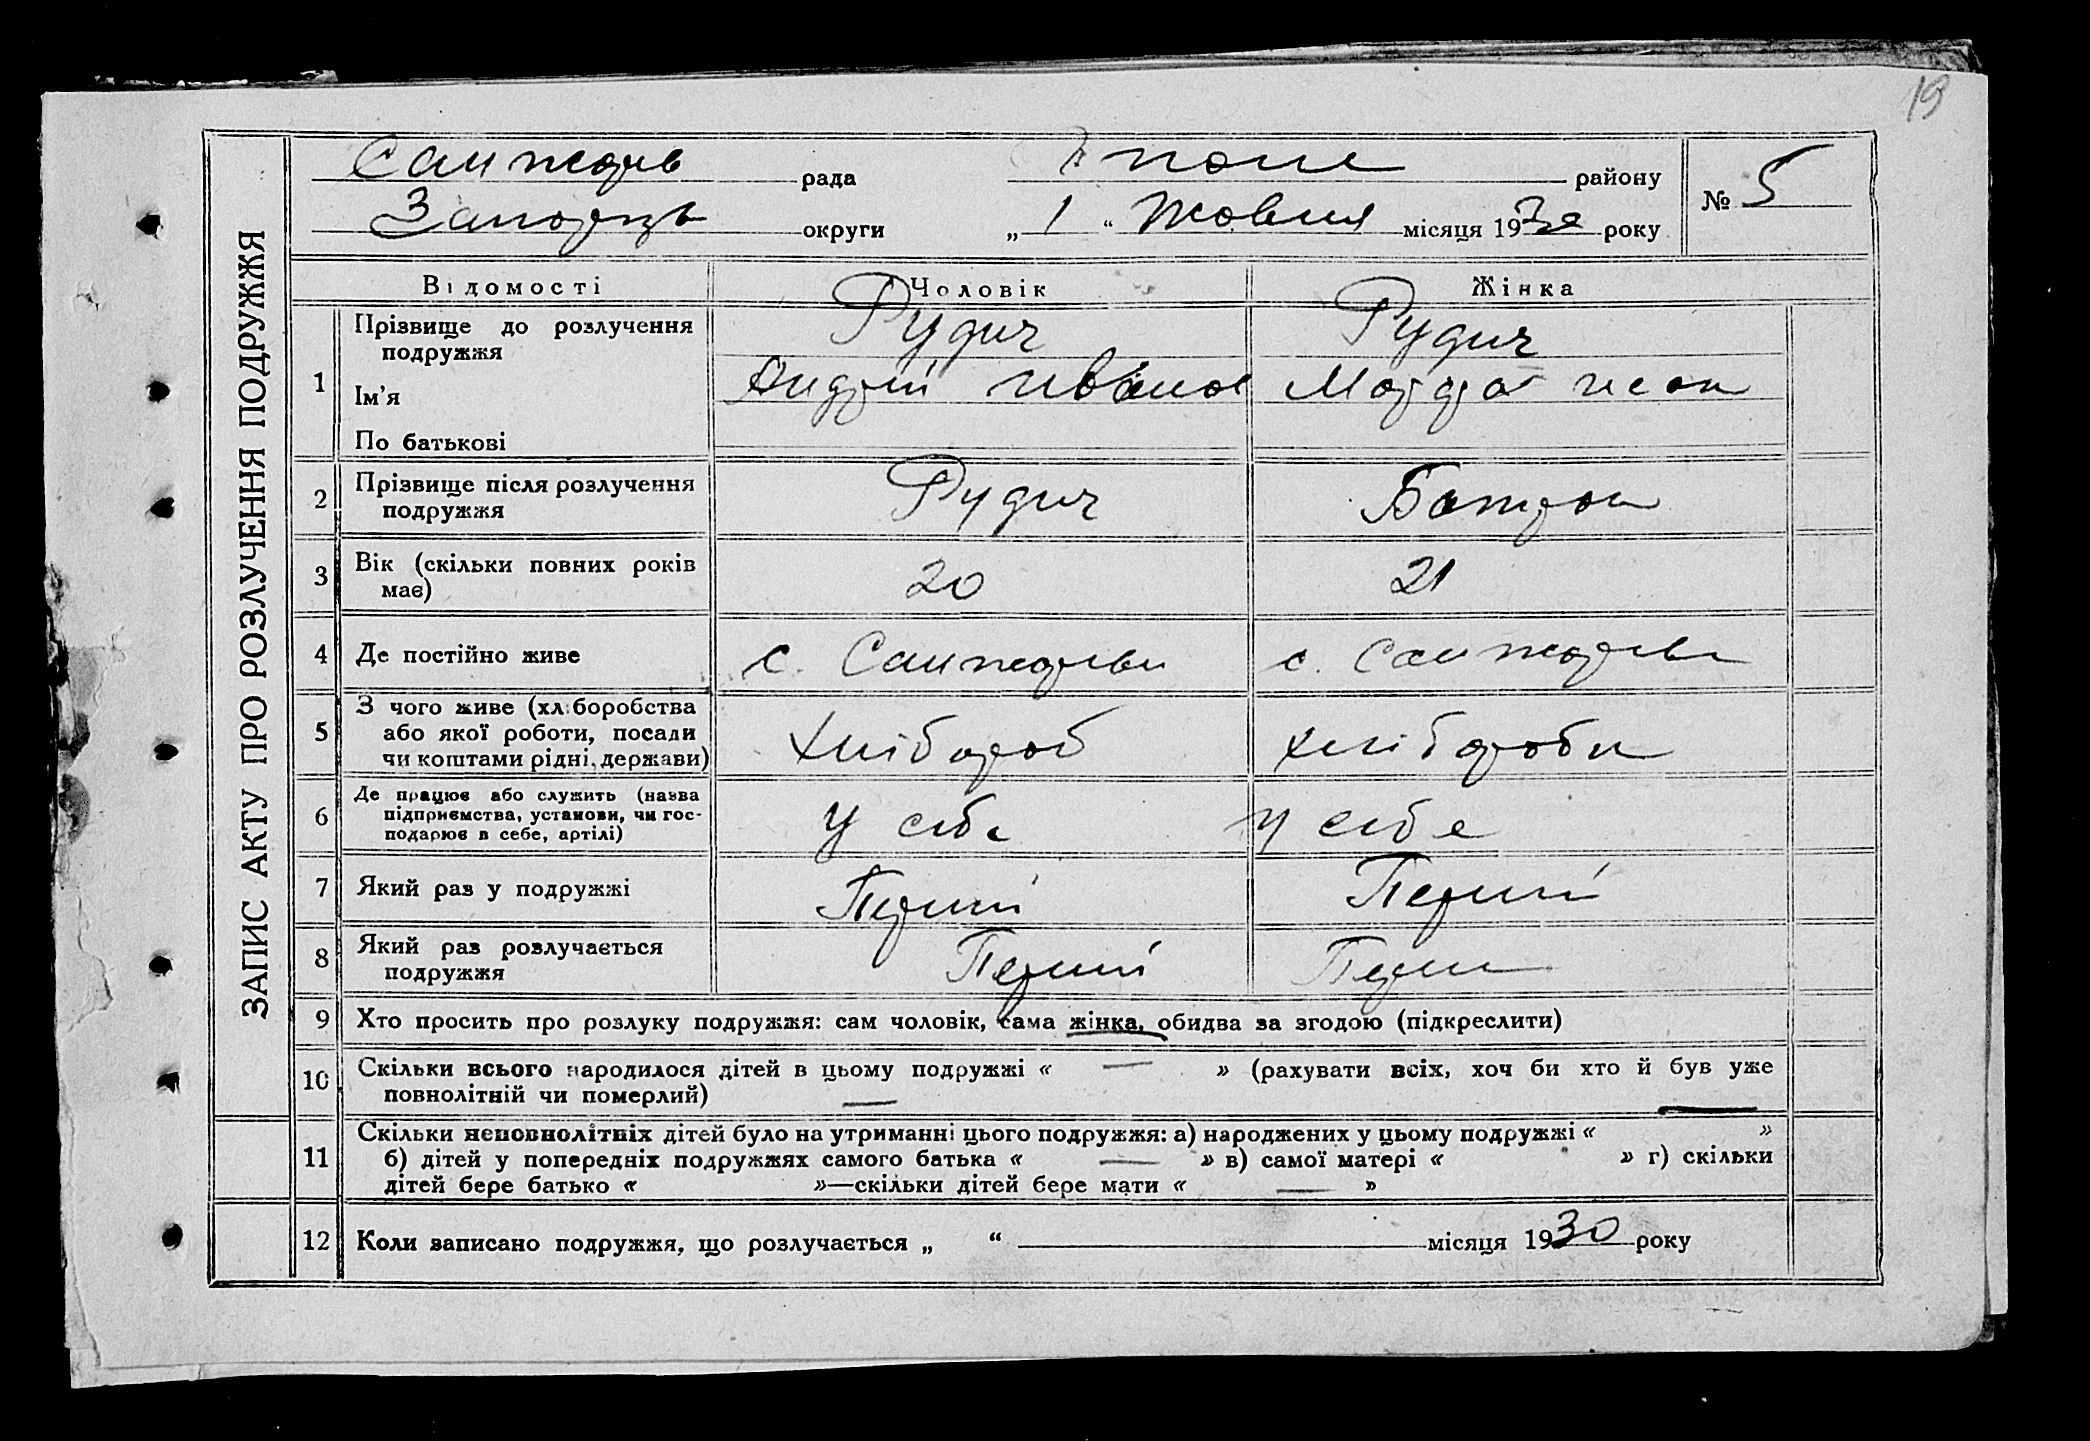 19
ЗАПИС АКТУ ПРО РОЗЛУЧЕННЯ ПОДРУЖЖЯ
рада
району
№ 5
округи „ 1 “ Жовтня місяця 1930 року
Відомості Чоловік Жінка
1 Прізвище до розлучення подружжя Рудич Рудич
Ім'я Андрій
По батькові
2 Прізвище після розлучення подружжя Рудич
3 Вік (скільки повних років має) 20 21
4 Де постійно живе с. с.
5 З чого живе (хліборобства або якої роботи, посади чи коштами рідні, держави) Хлібороб
6 Де працює або служить (назва підприємства, установи, чи господарює в себе, артілі) У себе У себе
7 Який раз у подружжі Перший Перший
8 Який раз розлучається подружжя Перший
9 Хто просить про розлуку подружжя: сам чоловік, сама жінка, обидва за згодою (підкреслити)
10 Скільки всього народилося дітей в цьому подружжі « — » (рахувати всіх, хоч би хто й був уже
повнолітній чи померлий) —
11 Скільки неповнолітніх дітей було на утриманні цього подружжя: а) народжених у цьому подружжі « — »
б) дітей у попередніх подружжях самого батька « — » в) самої матері « » г) скільки
дітей бере батько « »—скільки дітей бере мати « — »
12 Коли записано подружжя, що розлучається „ “ місяця 1930 року